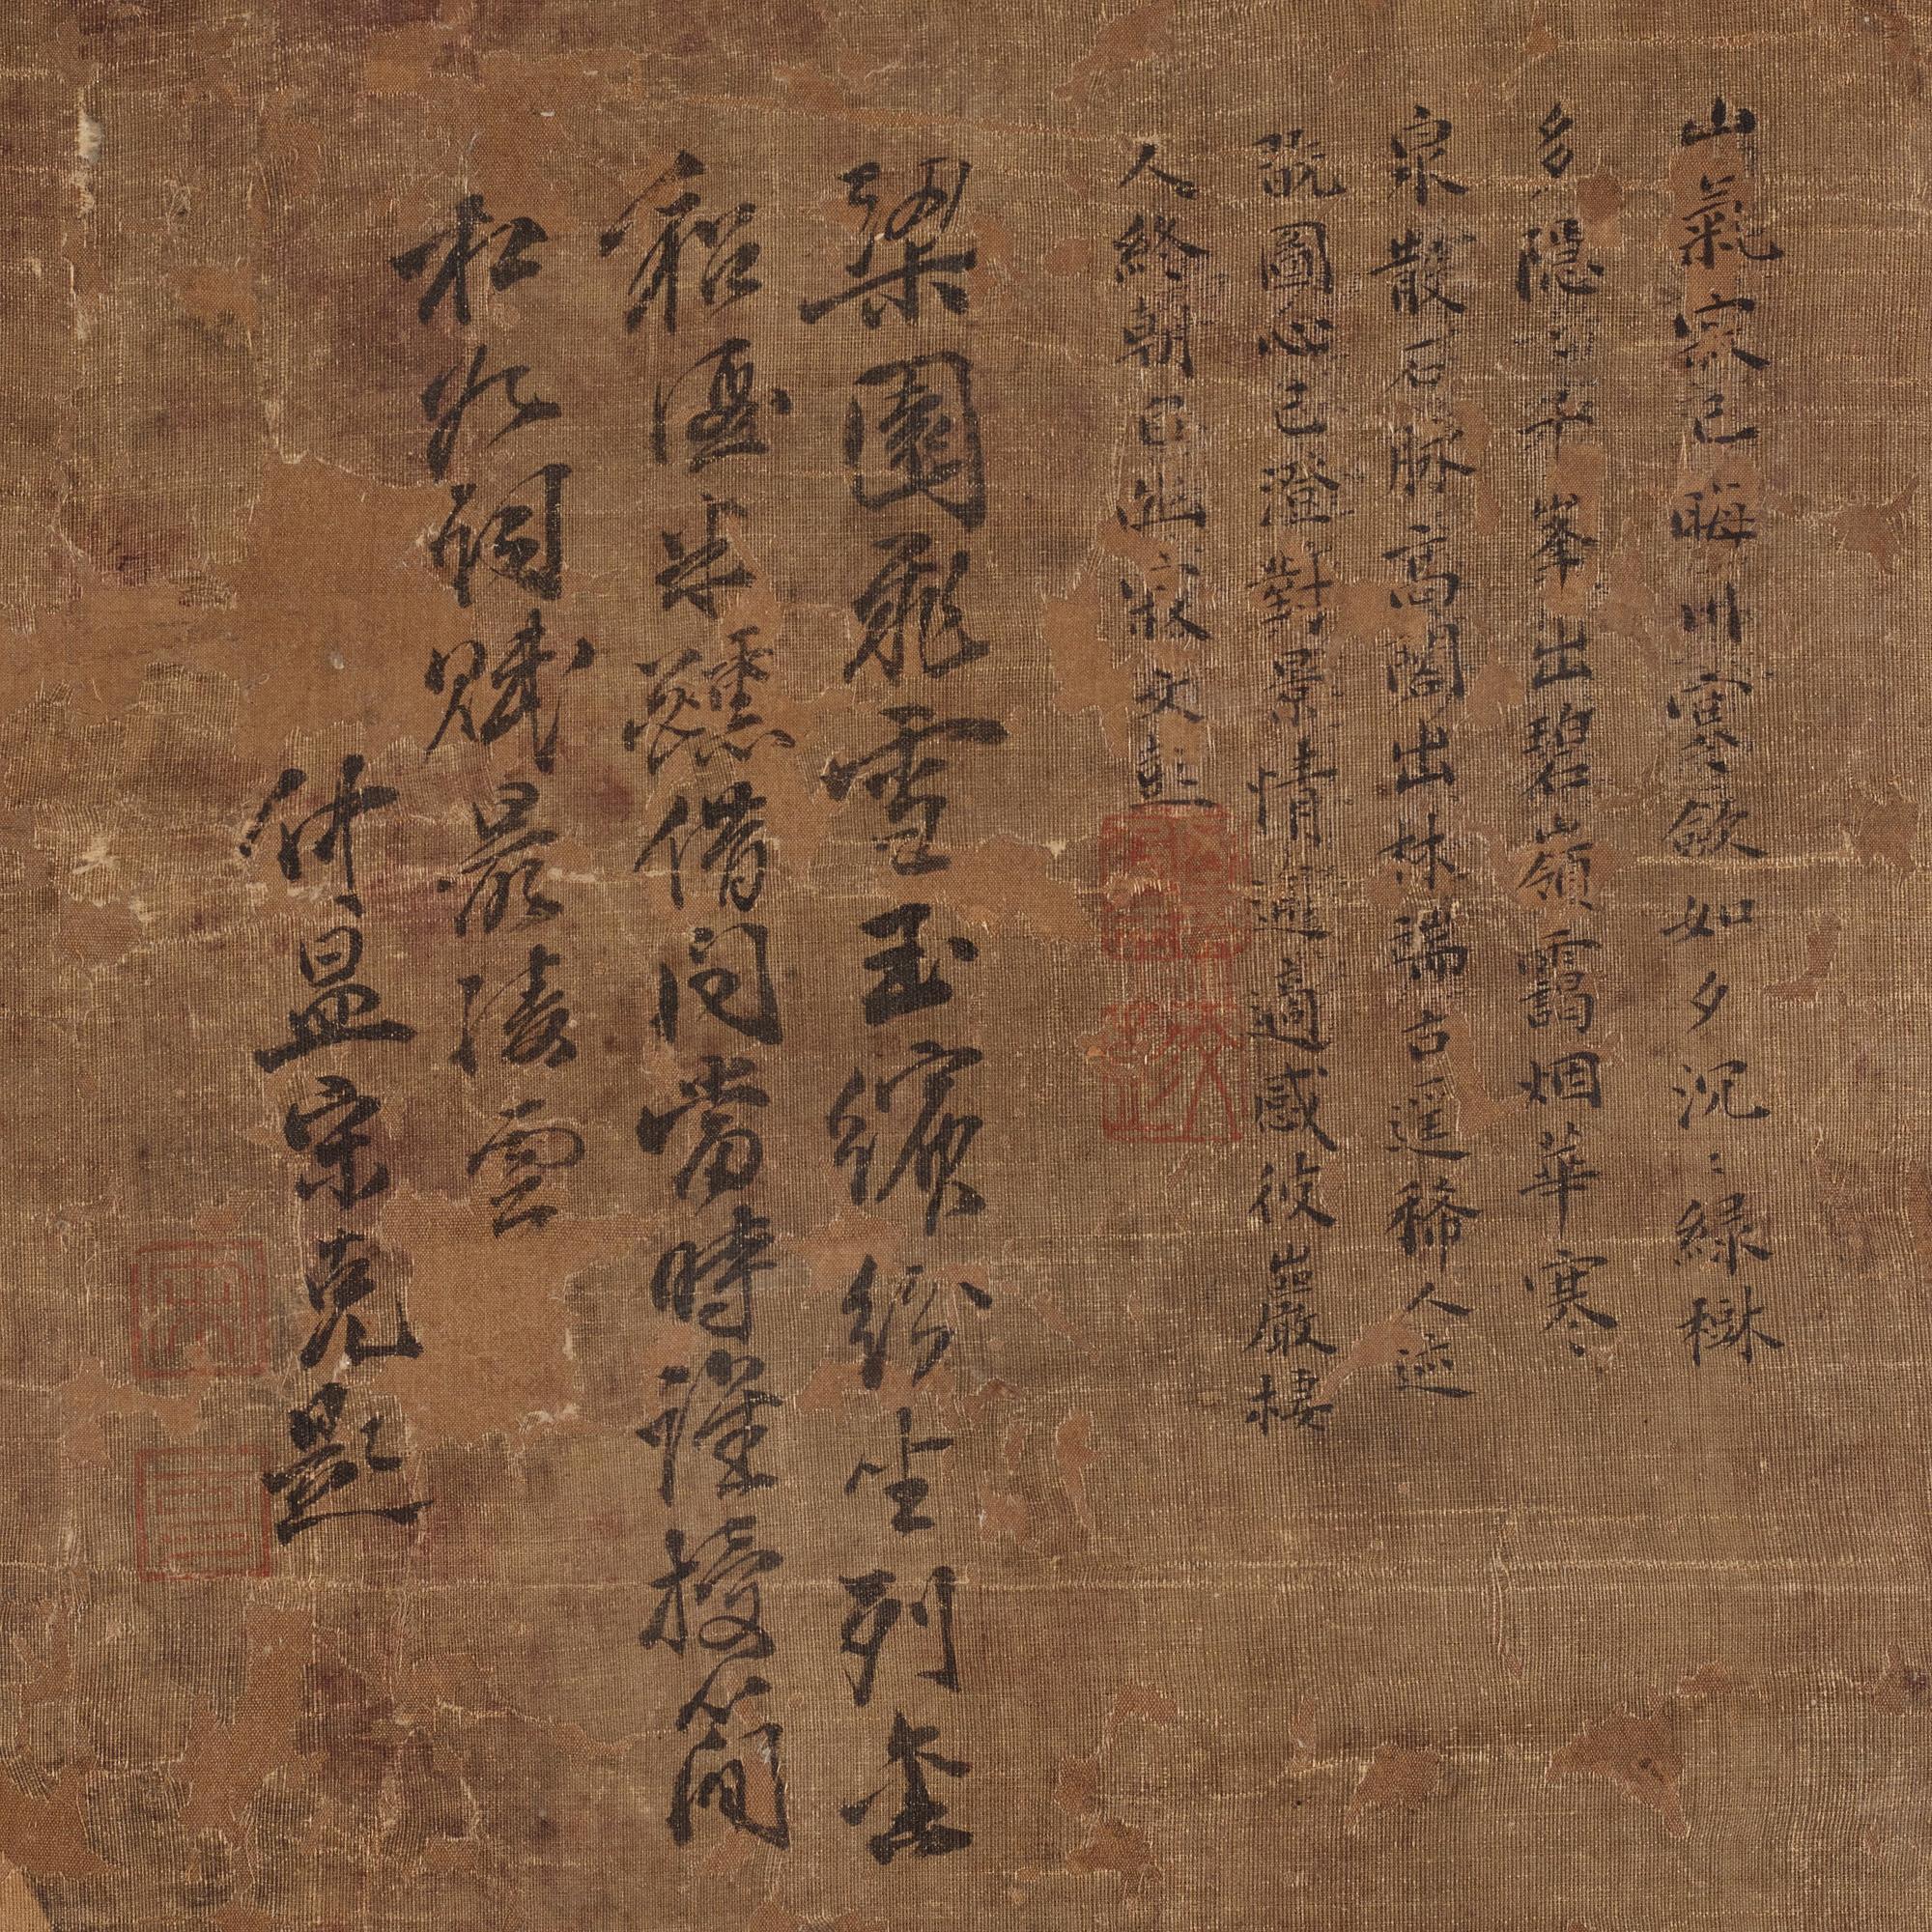 山氣寂已晦川容歛如夕沉〻緑樾
多隱〻千峯出碧嶺靄烟華寒〻
泉散石脉高閣出林端古遥稀人迹
翫圖心已澄對景情逾適感彼巖棲
人終朝日幽寂文彭
梁園飛雪玉繽紛坐列金
貂半醺借問當時誰授簡
相如詞賦最凌雲
仲昷宋克題